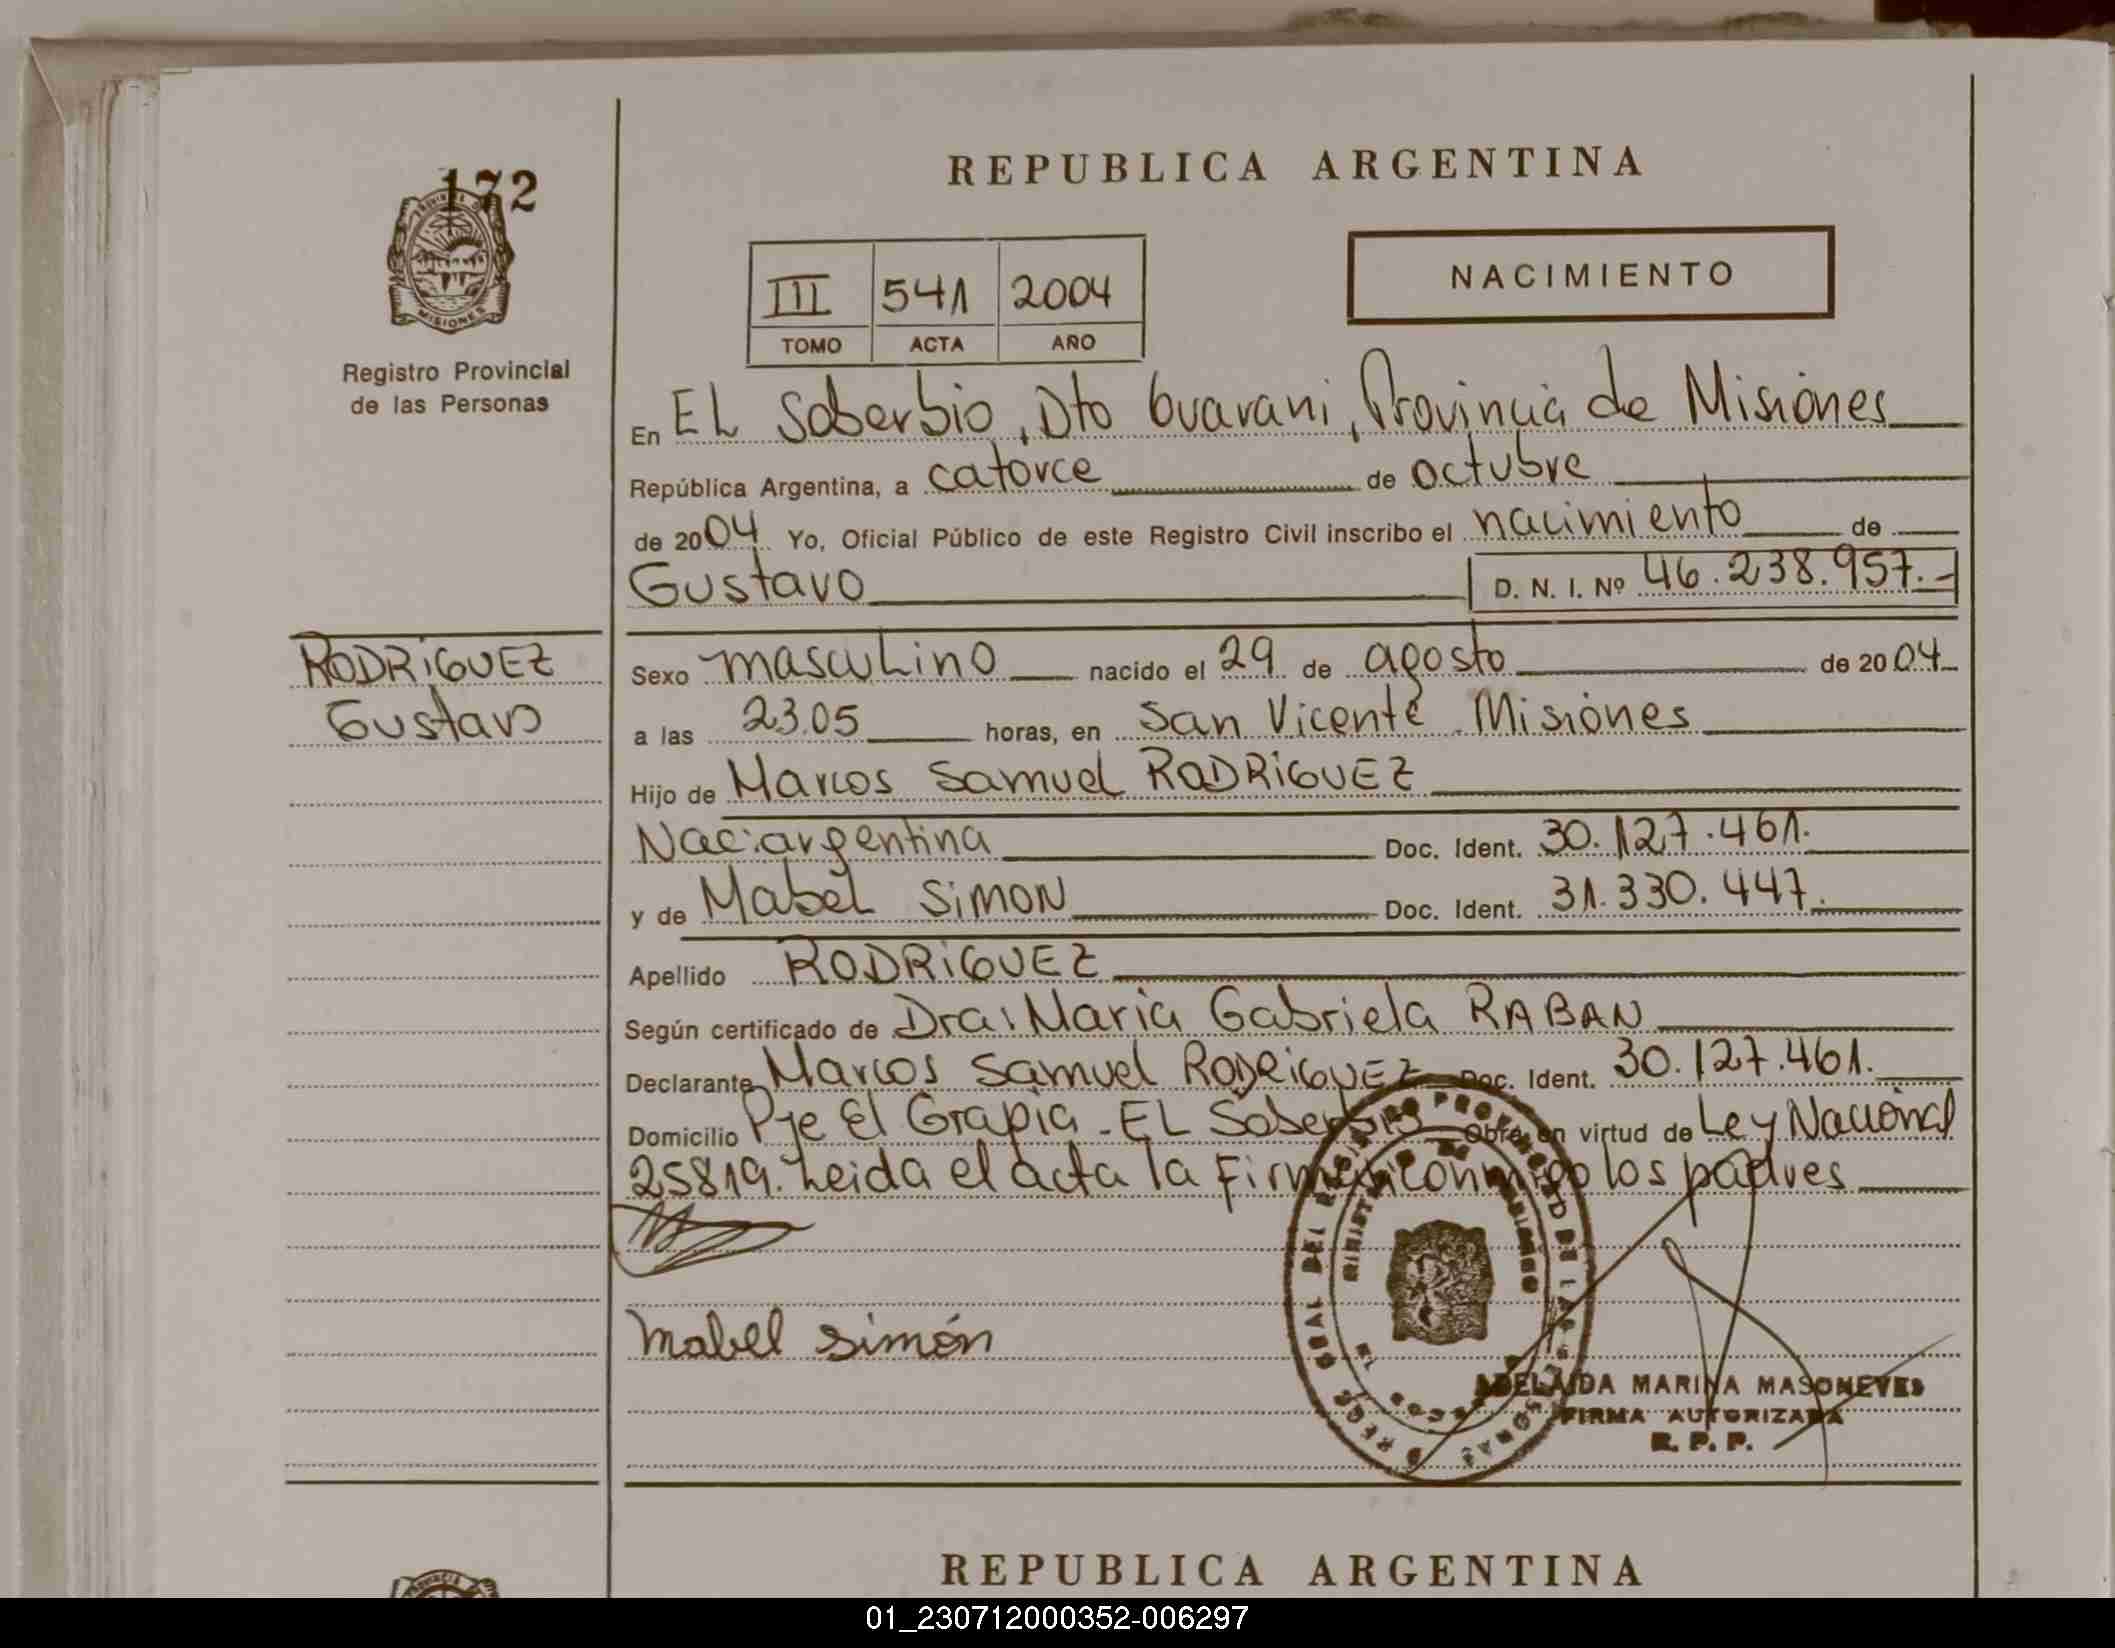 172
MISIONES
Registro Provincial
de las Personas
REPUBLICA ARGENTINA
III 541 2004
TOMO ACTA AÑO
NACIMIENTO
En EL Soberbio, Dto Guarani, Provincia de Misiones
República Argentina, a catorce de octubre
de 2004 Yo, Oficial Público de este Registro Civil inscribo el nacimiento de
Gustavo D. N. I. Nº 46.238.957.-
RODRiGUEZ
Gustavo
Sexo masculino nacido el 29 de agosto de 2004
a las 23.05 horas, en San Vicente. Misiones
Hijo de Marcos Samuel RODRiGUEZ
Nac: argentina Doc. Ident. 30.127.461.
y de Mabel SiMON Doc. Ident. 31.330.447.
Apellido RODRiGUEZ
Según certificado de Dra: Maria Gabriela RABAN
Declarante Marcos Samuel RODRiGUEZ Doc. Ident. 30.127.461.
Domicilio Pje El Grapia - EL Soberbio Obra en virtud de Ley Nacional
25819. Leida el acta la Firman conmigo los padres
Mabel Simón
ADELAIDA MARINA MASONEVES
FIRMA AUTORIZADA
R. P. P.
REPUBLICA ARGENTINA
01_230712000352-006297